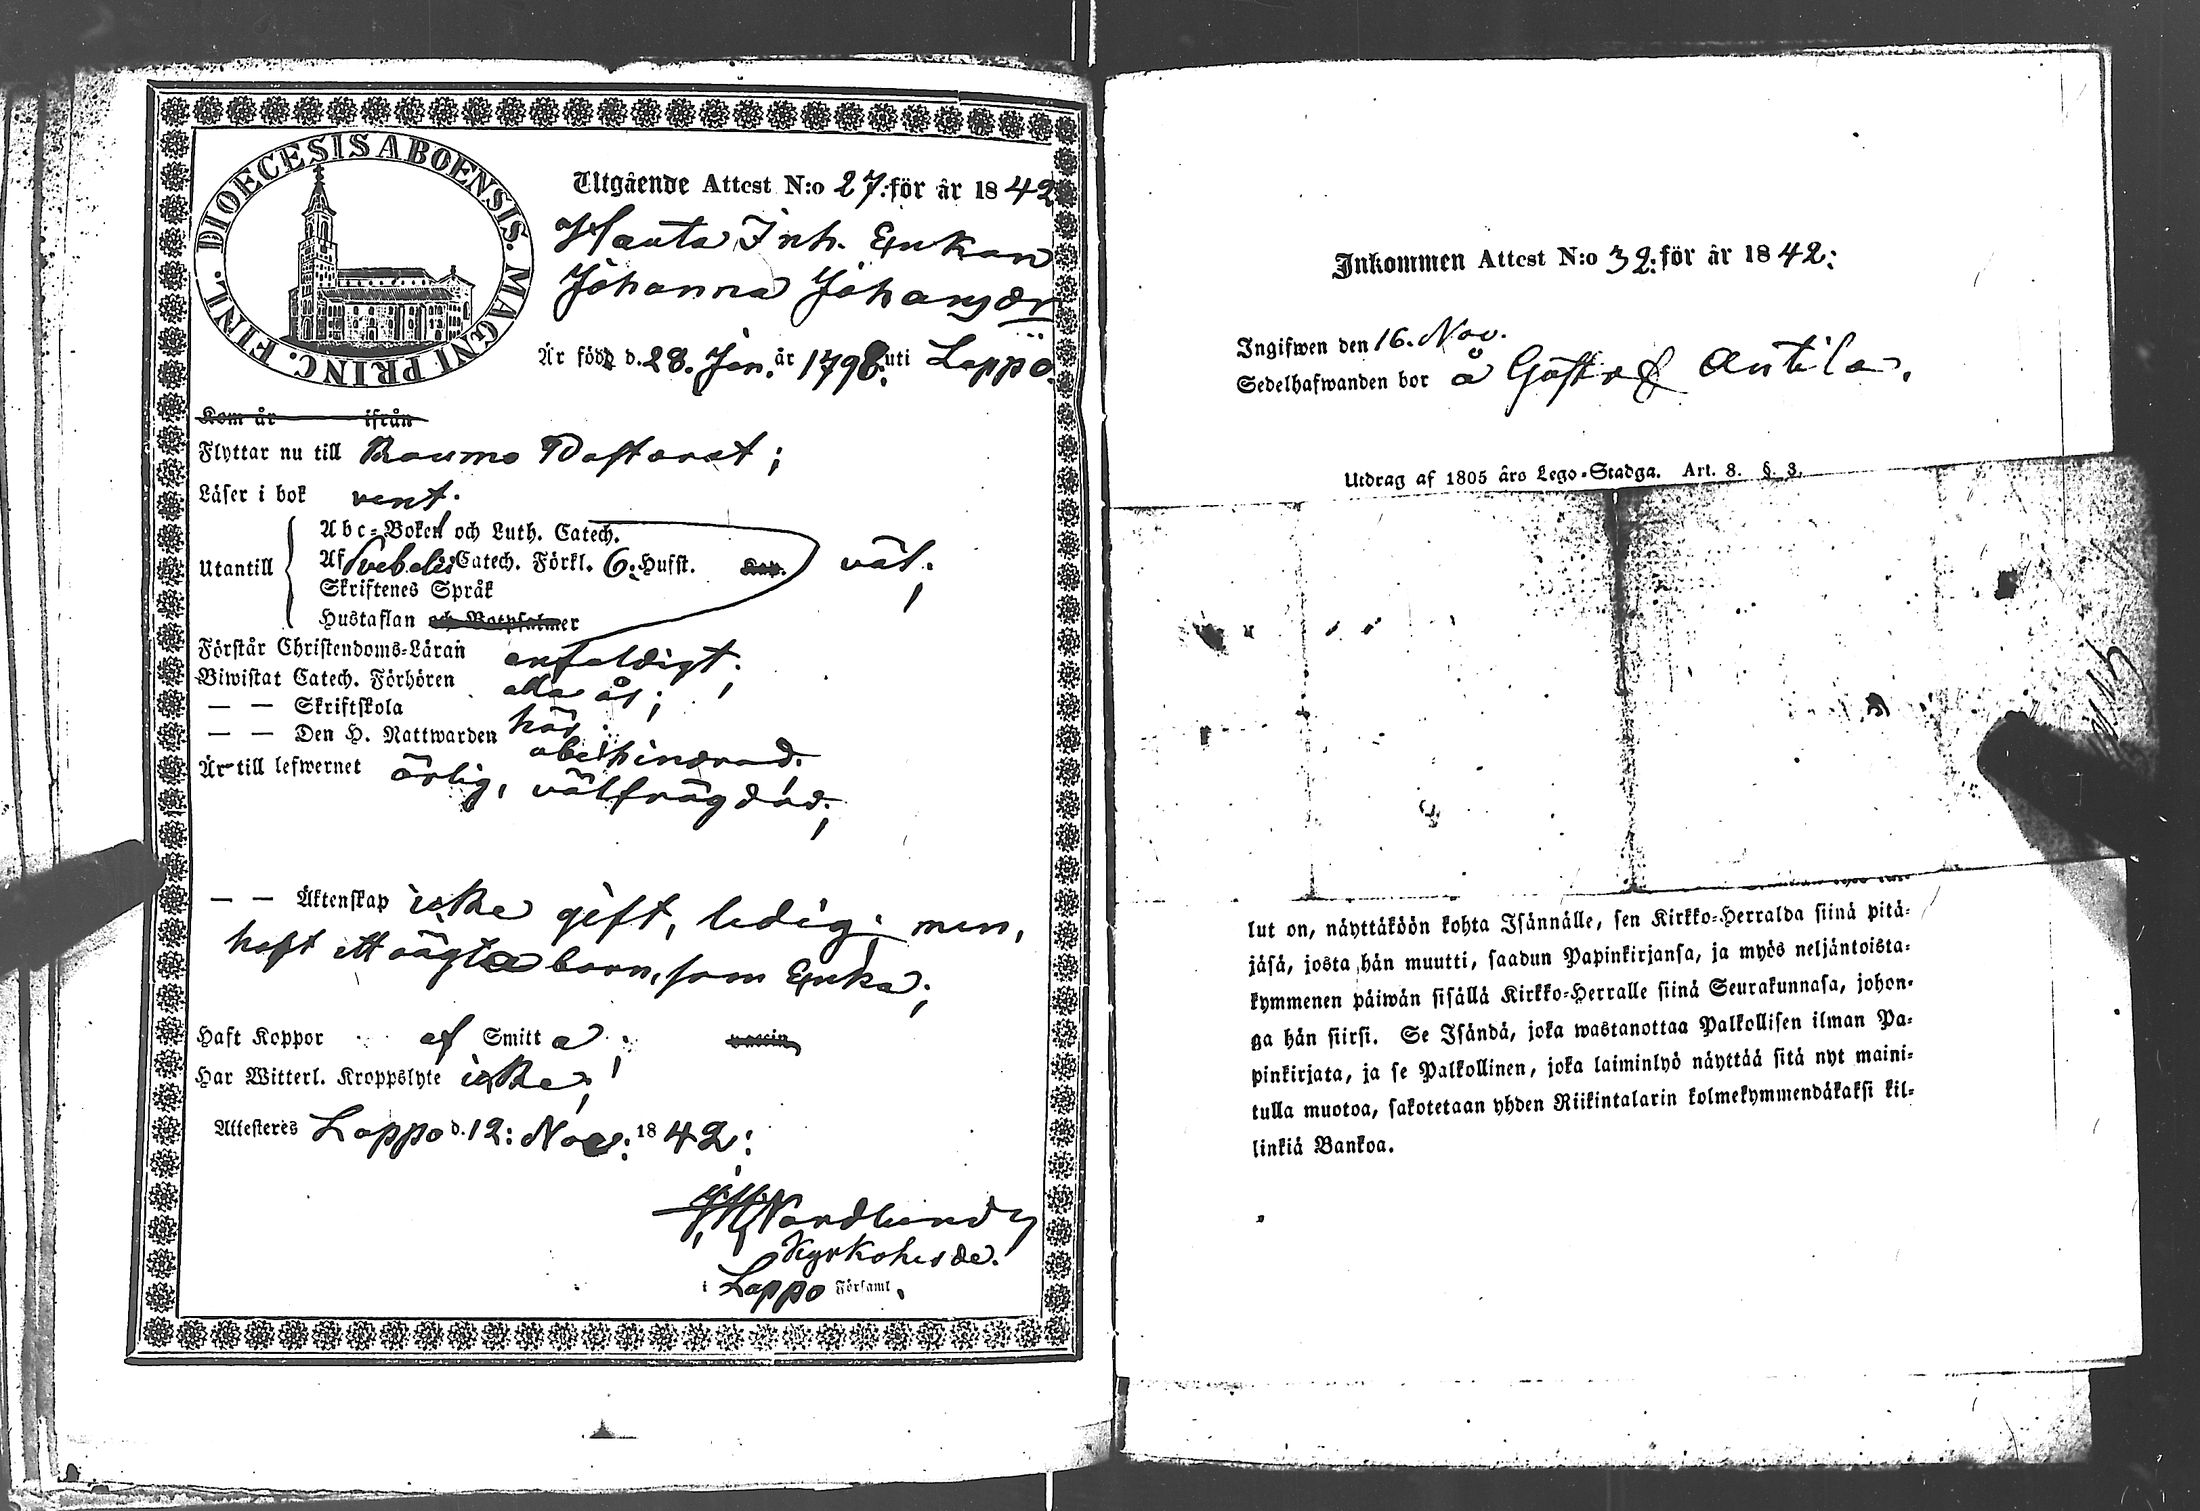 DIOECESIS ABOENSIS. MAGNI PRINC. FINL.
Utgående Attest N:o 27. för år 1842
Hauta Inh. Enkan
Johanna Johansdr
Är född d. 28. Jan. år 1798. uti Lappo.
Kom år ifrån
Flyttar nu till Raumo Pastorat;
Läser i bok rent;
Utantill
Abc-Boken och Luth. Catech.
Af Svebelii Catech. Förkl. 6. Hufst. Kap. väl;
Skriftenes Språk
Hustaflan och Botpsalmer
Förstår Christendoms-Läran enfaldigt;
Biwistat Catech. Förhören alla år;
— — Skriftskola här;
— — Den H. Nattwarden obehindrad.
Är till lefwernet ärlig, välfrägdad;
— — Äktenskap icke gift, ledig; men,
haft ett oägta barn, som Enka;
Haft Koppor af Smitta; vaccin
Har Witterl. Kroppslyte icke;
Attesteres Lappo d. 12: Nov: 1842:
Nordlund
Kyrkoherde.
i Lappo Församl.
Inkommen Attest N:o 32: för år 1842:
Ingifwen den 16. Nov.
Sedelhafwanden bor å Gustaf Antila.
Utdrag af 1805 års Lego-Stadga. Art. 8. §. 3.
lut on, näyttäköön kohta Isännälle, sen Kirkko-Herralda siinä pitä-
jäsä, josta hän muutti, saadun Papinkirjansa, ja myös neljäntoista-
kymmenen päiwän sisällä Kirkko-Herralle siinä Seurakunnasa, johon-
ga hän siirsi. Se Isändä, joka wastanottaa Palkollisen ilman Pa-
pinkirjata, ja se Palkollinen, joka laiminlyö näyttää sitä nyt maini-
tulla muotoa, sakotetaan yhden Riikintalarin kolmekymmendäkaksi kil-
linkiä Bankoa.